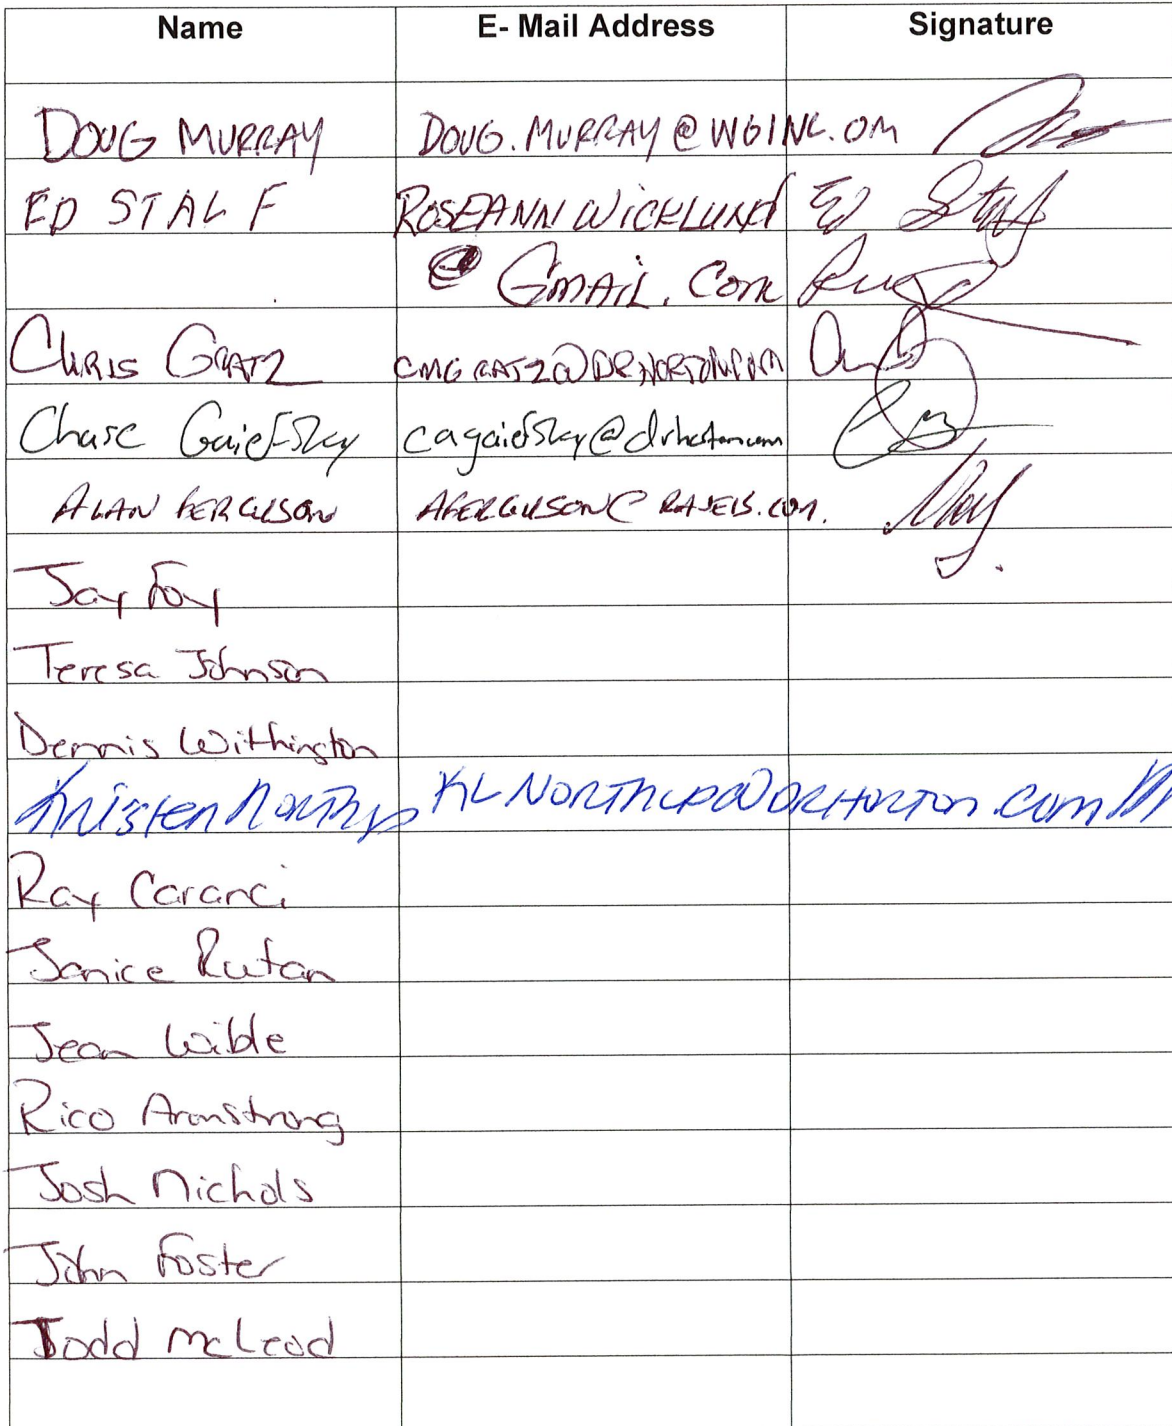 Name E- Mail Address Signature
DOUG MURRAY DOUG.MURRAY@WGINC.OM
ED STALF ROSEANNWICKLUND Ed Stalf
@ GMAIL.COM
CHRIS GRATZ CMGRATZ@DRHORTON.COM
Chase Gaiefsky cagaiefsky@drhorton.com
ALAN FERGUSON
Jay Foy
Teresa Johnson
Dennis Withington
Kristen Northup KLNORTHUP@DRHORTON.COM
Ray Caranci
Janice Rutan
Jean Wible
Rico Armstrong
Josh Nichols
John Foster
Todd McLeod